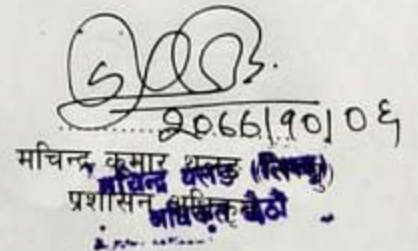 २०६६|१०|०६
मचिन्द्र कुमार थलङ
मचिन्द्र थलङ (लिम्बू)
प्रशासन अधिकृत
अधिकृत छैठौ